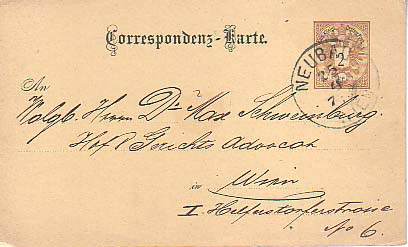 Correspondenz-Karte.
2
NEUBA
25
4
7
An
Wolgb. Herrn Dr. Max Schweinburg.
Hof & Gerichts Advocat
in Wien
I. Helferstorferstrasse
No 6.